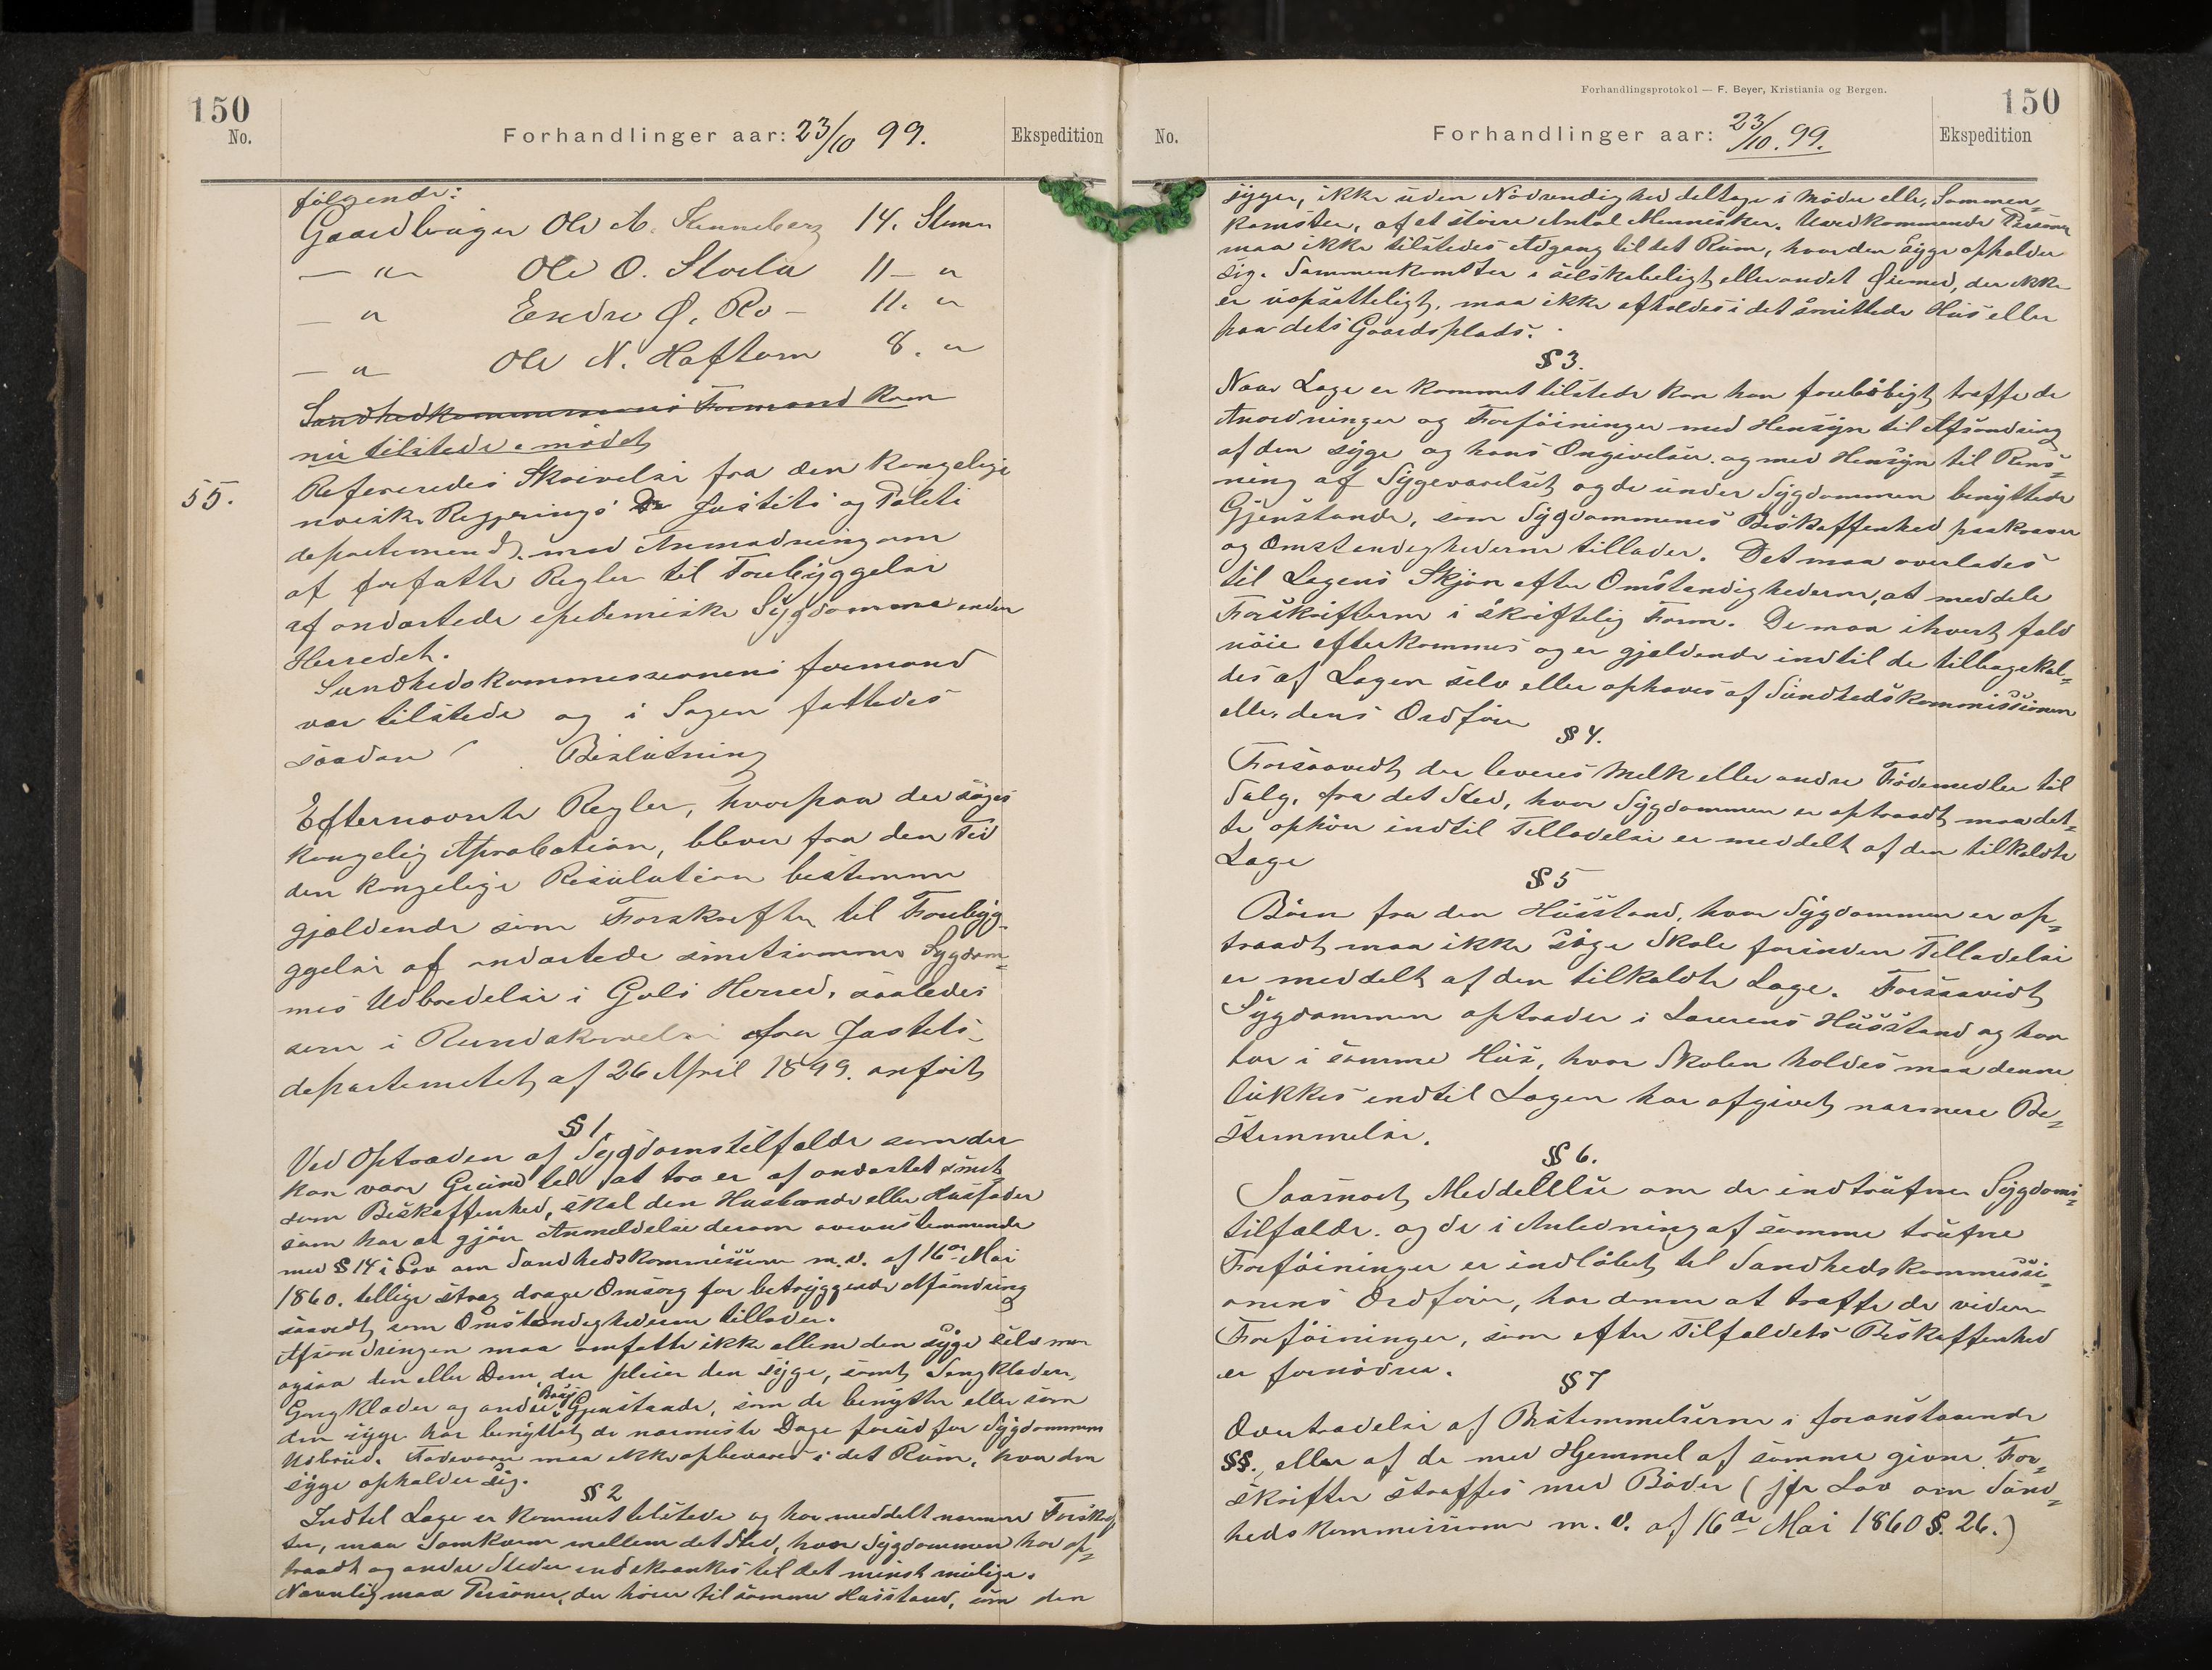 150
No.
Forhandlinger aar: 23/10 99.
Ekspedition
følgende:
Gaardbruger Ole A. Stenneberg 14. Stemr
— " Ole O. Storla 11 — "
— " Endre Ø. Ro — 11. "
— " Ole N. Haftorn 8. "
Sundhedkommissionens Formand kom
nu tilstede i mødet
55.
Refereredes Skrivelse fra den kongelige
norske Regjerings De Justits og Politi
departement, med Anmodning om
at forfatte Regler til Forebyggelse
af ondartede epidemiske Sygdomme inden
Herredet.
Sundhedskommessionens formand
var tilstede og i Sagen fattedes
saadan Beslutning
Efternævnte Regler, hvorpaa der søges
kongelig Aprobation, bliver fra den Tid
den kongelige Resulution bestemmer
gjældende som Forskrifter til Forebyg-
ggelse af ondartede smitsomme Sygdom-
mes Udbredelse i Gols Herred, saaledes
som i Rundskrivelse fra Justits-
departemetet af 26 April 1899. anført
§ 1.
Ved Optræden af Sygdomstilfælde som der
kan være Grund til at tro er af ondartet smit
som Beskaffenhed, skal den Husbonde eller Husfader
som har at gjøre Anmeldelse derom overenstemmende
med § 14 i Lov om Sundhedskommissioner m.v. af 16de Mai
1860. tillige strax drage Omsorg for betryggende Afsondring
saavidt som Omstændighederne tillader.
Afsondringen maa omfatte ikke allene den syge selv men
ogsaa den eller Dem, der pleier den syge, samt Sengklæder,
Gangklæder og andre Brugs Gjenstande, som de benytter eller som
den syge har benyttet de nærmeste Dage forud for Sygdommens
Udbrud. Fødevarer maa ikke opbevares i det Rum, hvor den
syge opholder sig.
§ 2
Indtil Læge er kommet tilstede og har meddelt nærmere Forskrif
ter, maa Samkvem mellem det Sted, hvor Sygdommen har op-
traadt og andre Steder indskrænkes til det minst mulige.
Navnlig maa Personer, der hører til samme Husstand, som den
Forhandlingsprotokol — F. Beyer, Kristiania og Bergen.
150
No.
Forhandlinger aar: 23/10. 99.
Ekspedition
syge, ikke uden Nødvendighed deltage i Møder eller Sammen-
komster, af et større Antal Mennesker. Uvedkommende Personer
maa ikke tilstedes Adgang til det Rum, hvor den Syge opholder
sig. Sammenkomster i selskabeligt eller andet Øiemed, der ikke
er uopsætteligt, maa ikke afholdes i det smittede Hus eller
paa dets Gaardsplads.
§ 3.
Naar Læge er kommet tilstede kan han foreløbigt træffe de
Anordninger og Forføininger med Hensyn til Afsondring
af den syge og hans Omgivelser og med Hensyn til Rens-
ning af Sygeværelset og de under Sygdommen benyttede
Gjenstande, som Sygdommenes Beskaffenhed paakræver
og Omstændighederne tillader. Det maa overlades
til Lægens Skjøn efter Omstændighederne, at meddele
Forskrifterne i skriftelig Form. De maa ihvert fald
nøie efterkommes og er gjældende indtil de tilbagekal-
des af Lægen selv eller ophæves af Sundhedskommissionen
eller dens Ordfører
§ 4.
Forsaavidt der leveres Melk eller andre Fødemedler til
Salg, fra det Sted, hvor Sygdommen er optraadt maa det-
te ophøre indtil Tilladelse er meddelt af den tilkaldte
Læge
§ 5
Børn fra den Husstand, hvor Sygdommen er op-
traadt maa ikke søge Skole forinden Tilladelse
er meddelt af den tilkaldte Læge. Forsaavidt
Sygdommen optræder i Lærerens Husstand og han
bor i samme Hus, hvor Skolen holdes maa denne
lukkes indtil Lægen har afgivet nærmere Be-
stemmelse.
§ 6.
Saasnart Meddelelse om de indtrufne Sygdoms-
tilfælde og de i Anledning af samme trufne
Forføininger er indløbet til Sundhedskommissi-
onens Ordfører, har denne at træffe de videre
Forføininger, som efter Tilfældets Beskaffenhed
er fornødne.
§ 7
Overtrædelse af Bestemmelserne i foranstaaende
§§. eller af de med Hjemmel af samme givne For-
skrifter straffes med Bøder (jfr Lov om Sund-
hedskommissioner m. v. af 16de Mai 1860 §. 26.)